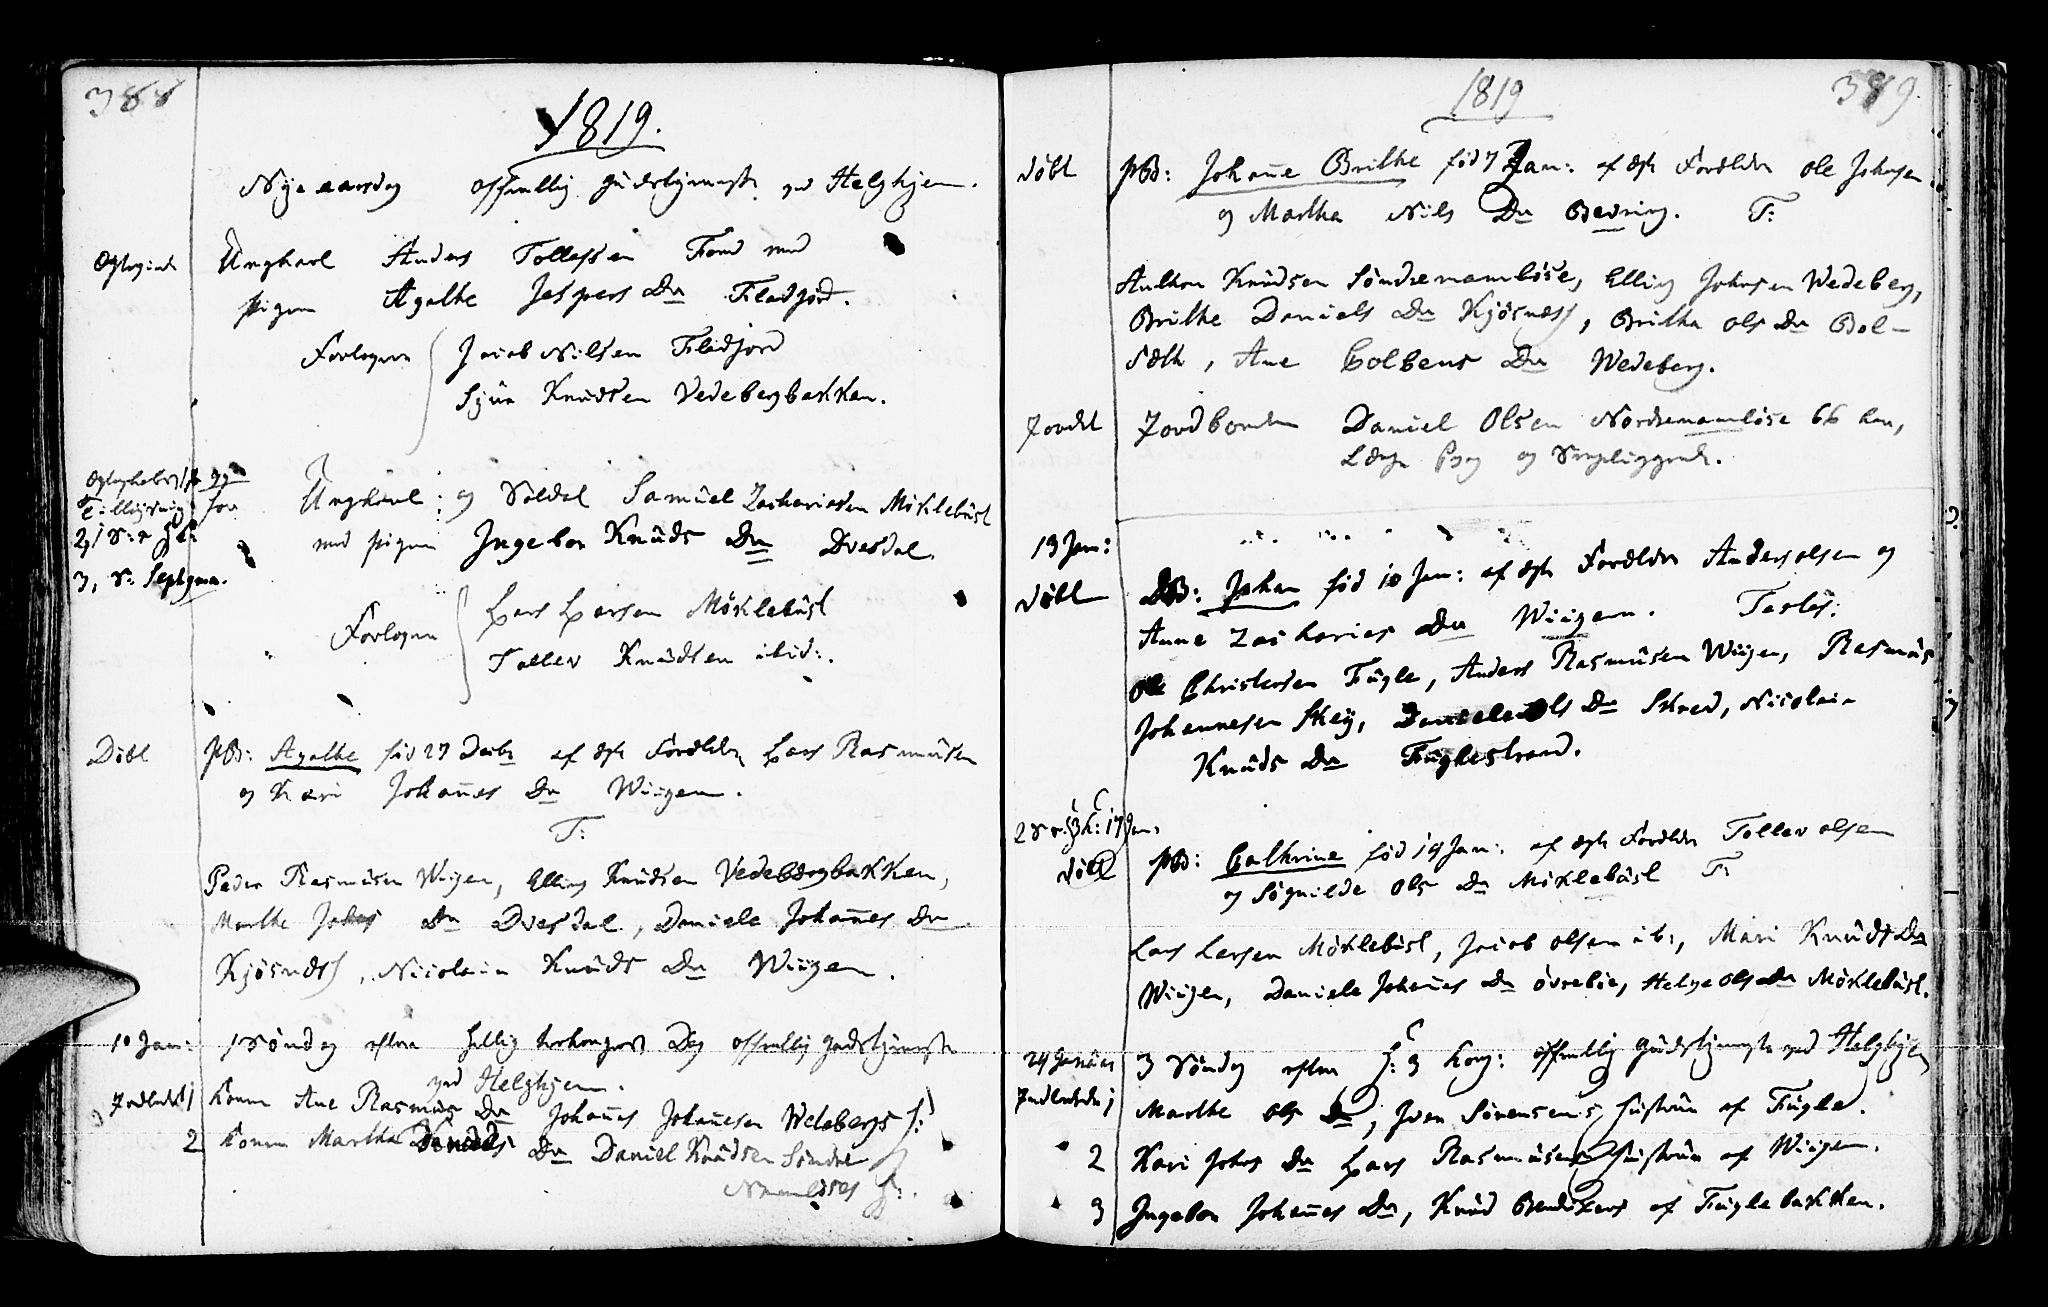 388
1819.
Nye aarsdag offentlig Gudstjeneste ved Helghjem.
Ungkarl Anders Tollefsen Fond med
pigen Agathe Jespers Dr Fladjord.
Forlovere Jacob Nilsen Fladjord
Sjur Knudsen Vedebergbakken.
for Ungkarl: og Soldat Samuel Zachariasen Möklebust
2, S: e
3, S: Septgma.
med pigen Ingebor Knuds Dr Dvesdal.
Forlovere Lars Larsen Möklebust
Tollev Knudsen ibid:.
Döbt PB: Agathe föd 27 Decbr af ægte Forældre Lars Rasmusen
og Kari Johannes Dr Wiigen.
T:
Peder Rasmusen Wigen, Elling Knudsen Vedebergbakken,
Marthe Johns Dr Dvesdal, Daniele Johannes Dr
Kjösnæs, Nicolaia Knuds Dr Wiigen.
10 Jan: 1 Söndag efter Hellig trekongers Dag offentlig gudstjeneste
ved Helghjem.
Indledet 1 Konen Ane Rasmus Dr Johannes Johannesen Wedebergs H:
2 Konen Martha Daniels Dr Daniel Knudsen Söndre
Namlöses H:.
1819
389
döbt PB: Johanne Brithe föd 7 Jan: af ægte Forældre Ole Johnsen
og Martha Nils Dr Bedring. T:
Anthon Knudsen Söndrenamlöse, Elling Johnsen Wedeberg,
Brithe Daniels Dr Kjösnæs, Britha Ols Dr Bol-
sæth, Ane Colbens Dr Wedeberg.
Jordet Jordbonden Daniel Olsen Nordrenamlöse 66 Aar,
Længe Syg og Sengliggende.
13 Jan:
döbt DB: Johan föd 10 Jan: af ægte Forældre Anders Olsen og
Anne Zacharies Dr Wiigen. Testes:
Ole Christensen Fugle, Anders Rasmusen Wigen, Rasmus
Johannesen Skeij, Daniele Ols Dr Skred, Nicolaia
Knuds Dr Fuglestrand.
2 S e H 3 K: 17 Jan:
döbt PB: Cathrine föd 14 Jan: af ægte Forældre Tollev Olsen
og Sögnilde Ols Dr Möklebust T:
Lars Larsen Möklebust, Jacob Olsen ib:, Mari Knuds Dr
Wiigen, Daniele Johannes Dr Övreböe, Helge Ols Dr Möklebust.
24 Januar 3 Söndag efter H: 3 Kong: offentlig Gudstjeneste ved Helghjem
Indledede 1 Marthe Ols Dr, Iver Sörensens Hustrue af Fugle.
2 Kari Johns Dr Lars Rasmusens Hustrue af Wiigen.
3 Ingebor Johannes Dr, Knud Bendixens af Fuglebakken.